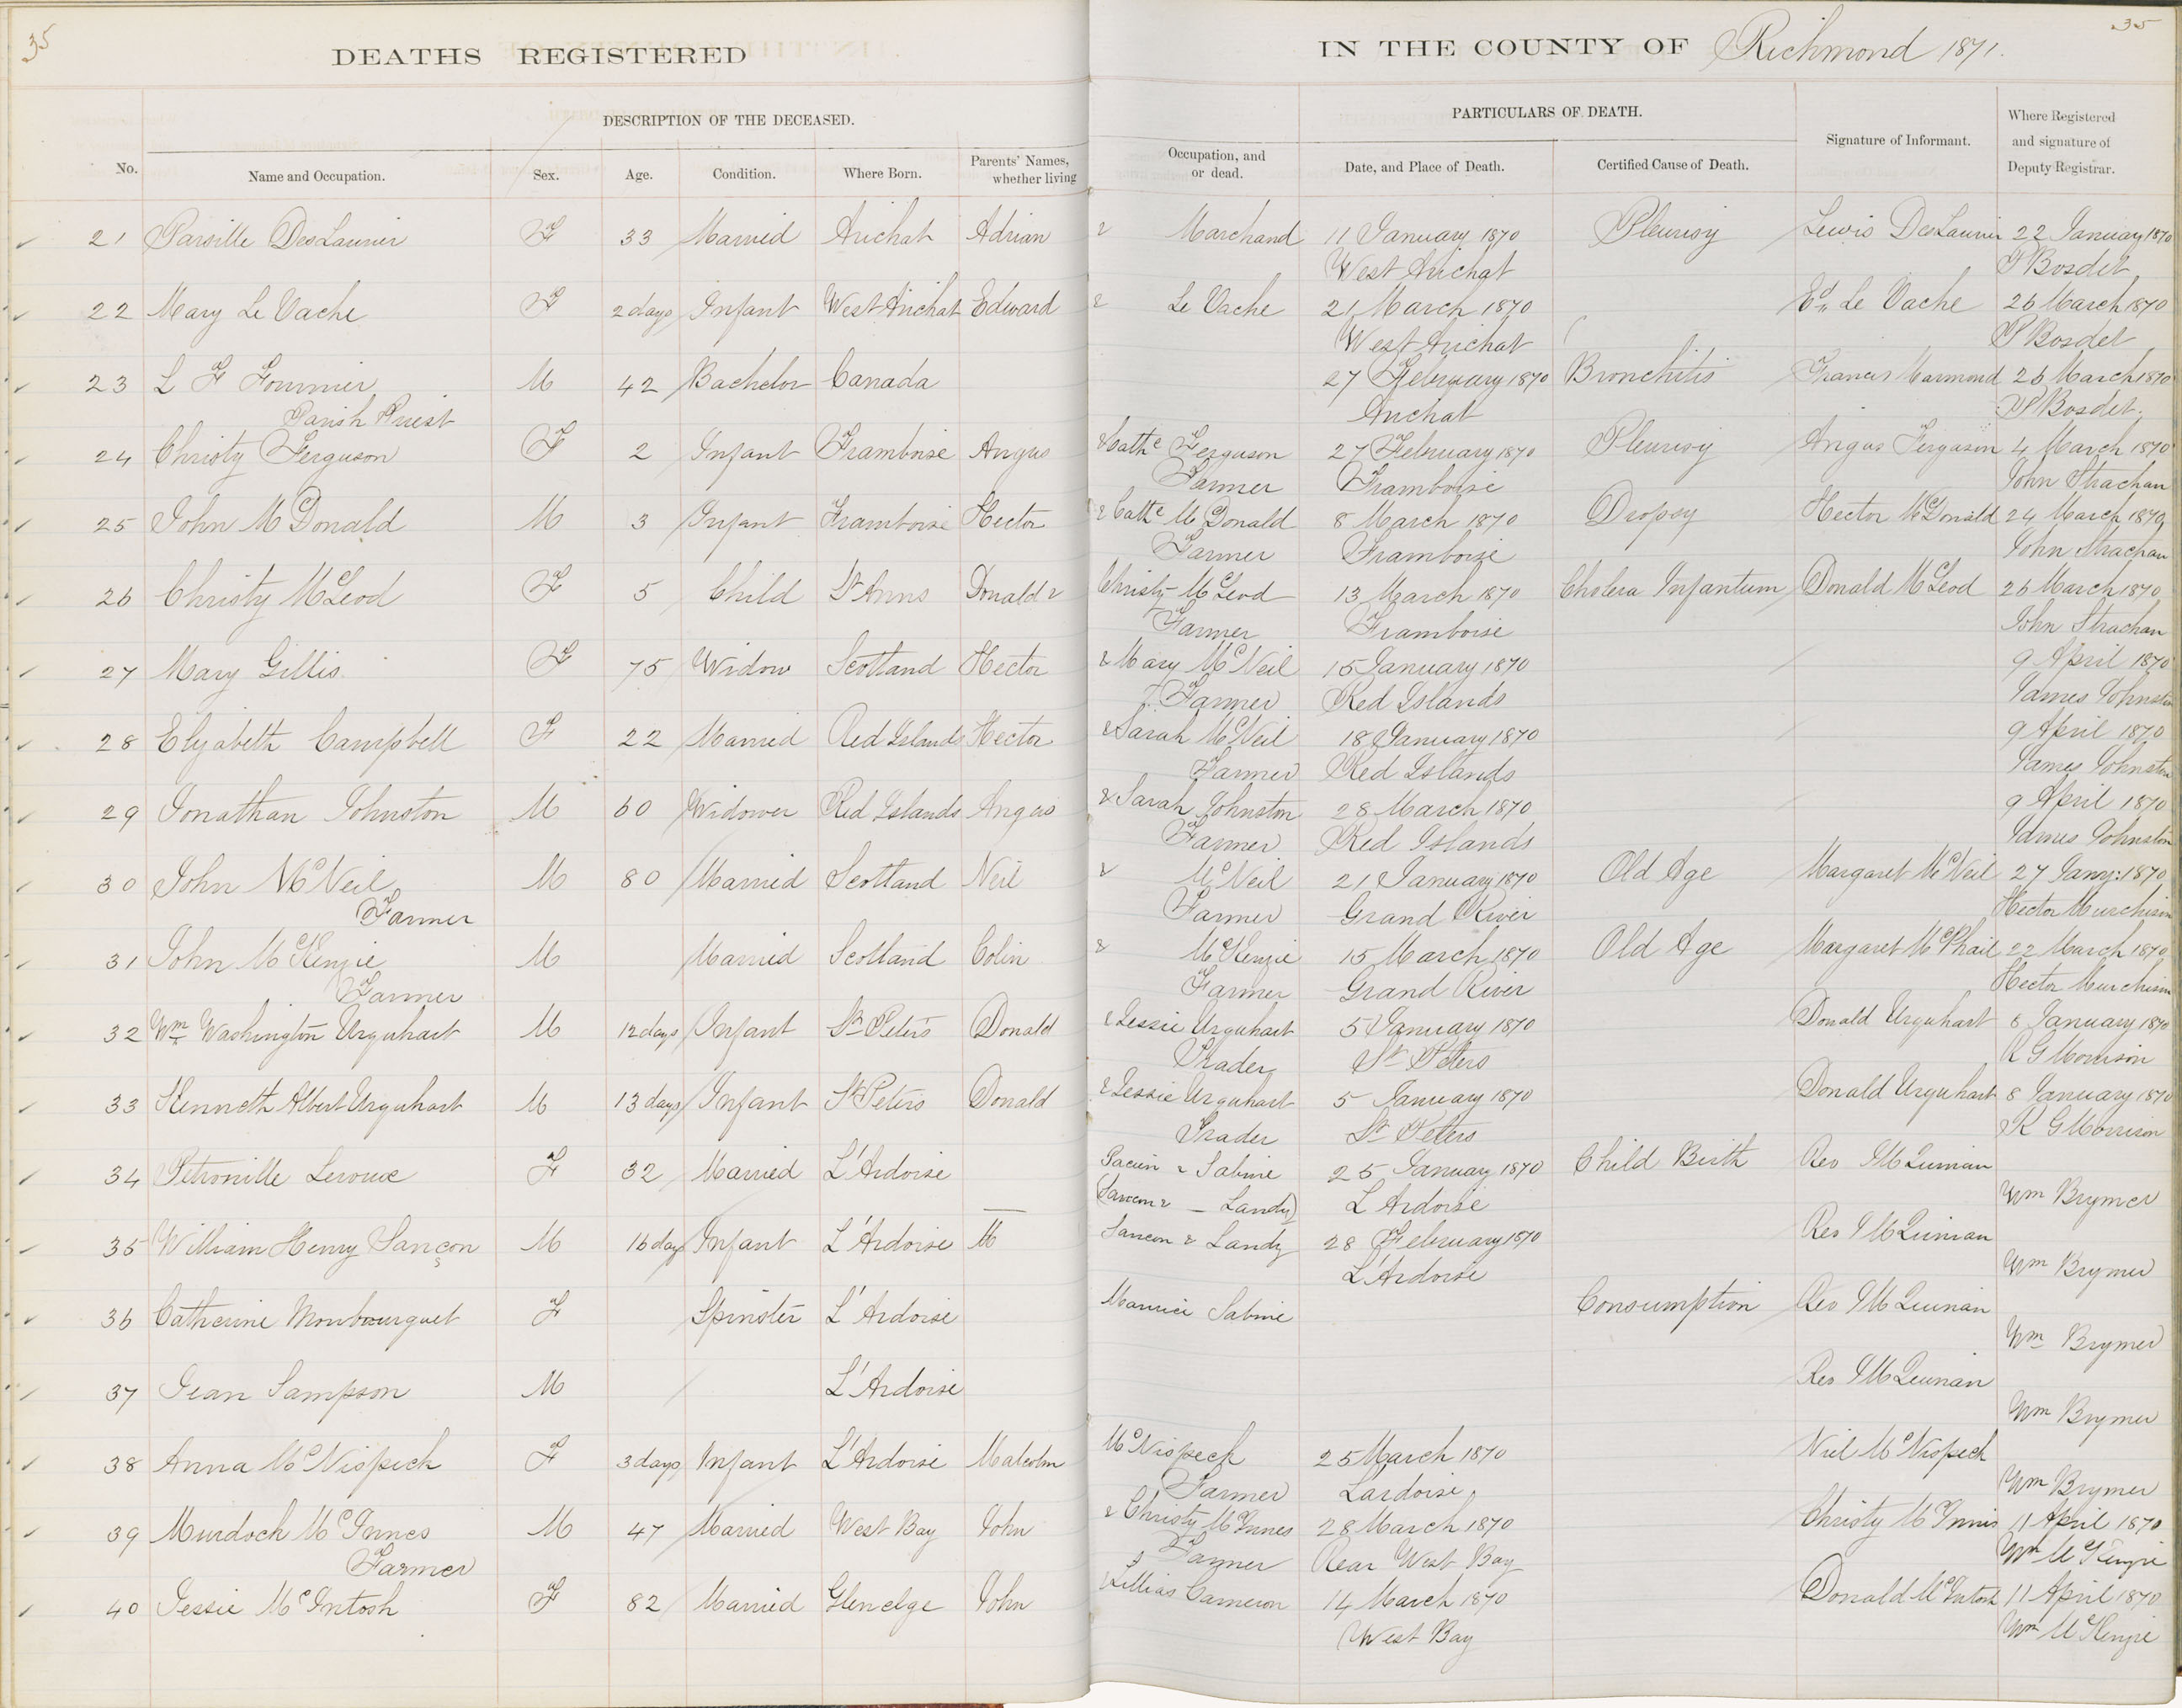 35
35
DEATHS REGISTERED IN THE COUNTY OF Richmond 1871.
DESCRIPTION OF THE DECEASED. PARTICULARS OF DEATH.
No. Name and Occupation. Sex. Age. Condition. Where Born. Parents' Names, whether living Occupation, and or dead. Date, and Place of Death. Certified Cause of Death. Signature of Informant. Where Registered and signature of Deputy Registrar.
21 DesLaurier F 33 Married Arichat Adrian & Marchand 11 January 1870 Pleurisy Lewis DesLaurier 22 January 1870
West Arichat P Bosdet
22 Mary Le Vache F 2 days Infant West Arichat Edward & Le Vache 21 March 1870 Ed. Le Vache 26 March 1870
West Arichat P Bosdet
23 L F Fournier M 42 Bachelor Canada 27 February 1870 Bronchitis Francis Marmond 26 March 1870
Parish Priest Arichat P Bosdet
24 Christy Ferguson F 2 Infant Framboise Angus & Cathe Ferguson 27 February 1870 Pleurisy Angus Ferguson 4 March 1870
Farmer Framboise John Strachan
25 John McDonald M 3 Infant Framboise Hector & Cathe McDonald 8 March 1870 Dropsy Hector McDonald 24 March 1870
Farmer Framboise John Strachan
26 Christy McLeod F 5 Child St Anns Donald & Christy McLeod 13 March 1870 Cholera Infantum Donald McLeod 26 March 1870
Farmer Framboise John Strachan
27 Mary Gillis F 75 Widow Scotland Hector & Mary McNeil 15 January 1870 9 April 1870
Farmer Red Islands James Johnston
28 Elizabeth Campbell F 22 Married Red Islands Hector & Sarah McNeil 18 January 1870 9 April 1870
Farmer Red Islands James Johnston
29 Jonathan Johnston M 60 Widower Red Islands Angus & Sarah Johnston 28 March 1870 9 April 1870
Farmer Red Islands James Johnston
30 John McNeil M 80 Married Scotland Neil & McNeil 21 January 1870 Old Age Margaret McNeil 27 Jany: 1870
Farmer Farmer Grand River Hector Murchison
31 John McKenzie M Married Scotland Colin & McKenzie 15 March 1870 Old Age Margaret McPhail 22 March 1870
Farmer Farmer Grand River Hector Murchison
32 Wm Washington Urquhart M 12 days Infant St Peters Donald & Jessie Urquhart 5 January 1870 Donald Urquhart 8 January 1870
Trader St Peters R G Morrison
33 Kenneth Albert Urquhart M 13 days Infant St Peters Donald & Jessie Urquhart 5 January 1870 Donald Urquhart 8 January 1870
Trader St Peters R G Morrison
34 Petronille Leroux F 32 Married L'Ardoise & Sabine 25 January 1870 Child Birth Rev
(Sancon & — Landy) L'Ardoise Wm Brymer
35 William Henry Sançon M 16 days Infant L'Ardoise M Sancon & Landy 28 February 1870 Rev
L'Ardoise Wm Brymer
36 Catherine Monbourquet F Spinster L'Ardoise Maurice Sabine Consumption Rev
Wm Brymer
37 Jean Sampson M L'Ardoise Rev
Wm Brymer
38 Anna McNispeck F 3 days Infant L'Ardoise Malcolm McNispeck 25 March 1870 Niel McNispeck
Farmer Lardoise Wm Brymer
39 Murdoch McInnes M 47 Married West Bay John & Christy McInnes 28 March 1870 Christy McInnis 11 April 1870
Farmer Farmer Rear West Bay Wm McKenzie
40 Jessie McIntosh F 82 Married Glenelge John & Lillias Cameron 14 March 1870 Donald McIntosh 11 April 1870
West Bay Wm McKenzie